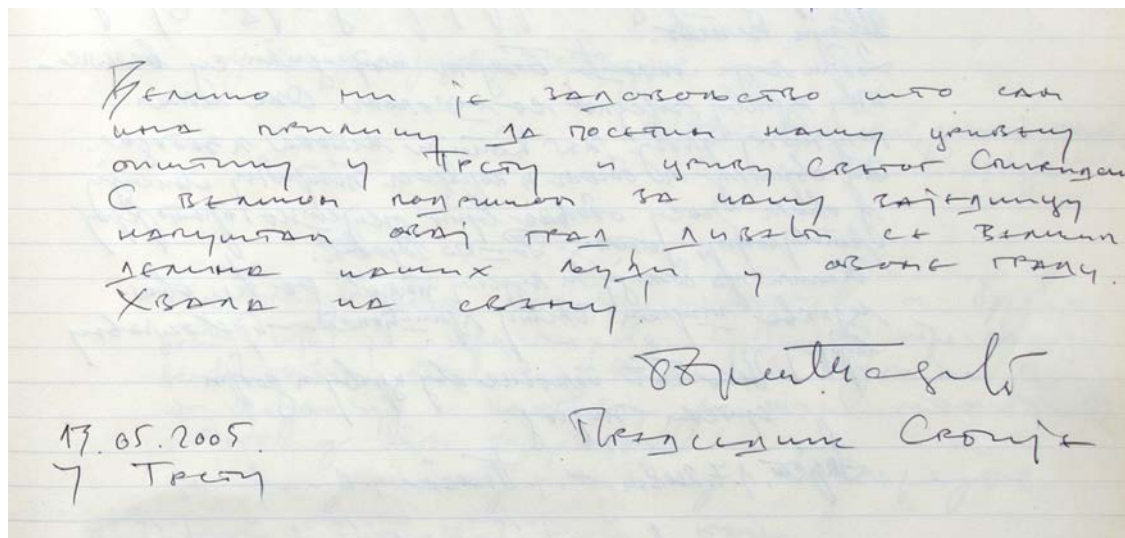 Велико ми је задовољство што сам
има прилику да посетим нашу црквену
општину у Трсту и цркву Светог Спиридона
С великом подршком за нашу заједницу
напуштам овај град дивећи се великим
делима наших људи у овоме граду.
Хвала на свему!
Председник Србије
13.05.2005.
у Трсту